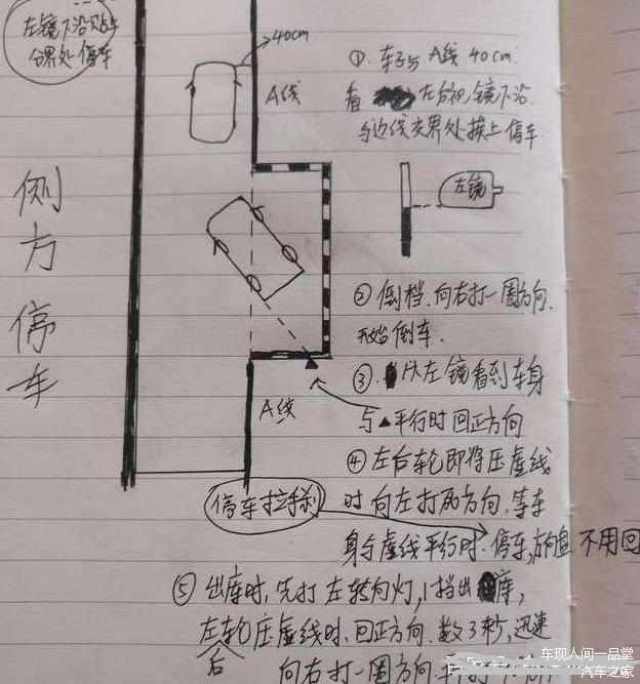 左镜下沿贴与
分界处停车
40cm
A线
侧方停车
① 车子与A线40cm.
看 左后视镜下沿
与边线交界处挨上停车
左镜
② 倒档.向右打一圈方向.
开始倒车.
③ 从左镜看到车身
与▲平行时回正方向
A线
④ 左后轮即将压虚线
时向左打两方向.等车
身与虚线平行时.停车,方向盘不用回
停车拉手刹
⑤ 出库时,先打左转向灯,1挡出库,
左后轮压虚线时.回正方向.数3秒,迅速
向右打一圈方向
车现人间一品堂
汽车之家